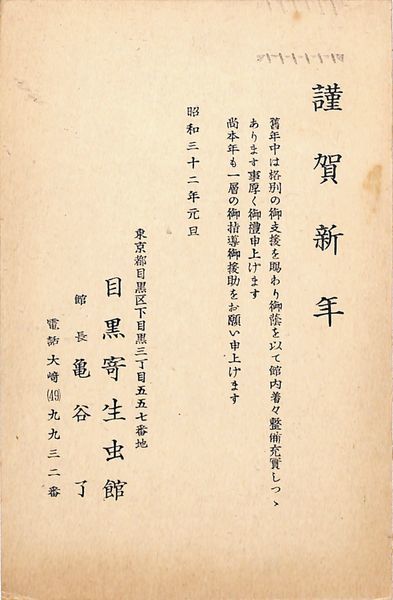 謹賀新年
舊年中は格別の御支援を賜わり御蔭を以て館内着々整備充實しつゝ
あります事厚く御禮申上げます
尚本年も一層の御指導御援助をお願い申上げます
昭和三十二年元旦
東京都目黒区下目黒三丁目五五七番地
目黒寄生虫館
館長 亀谷了
電話大崎(49)九九三二番